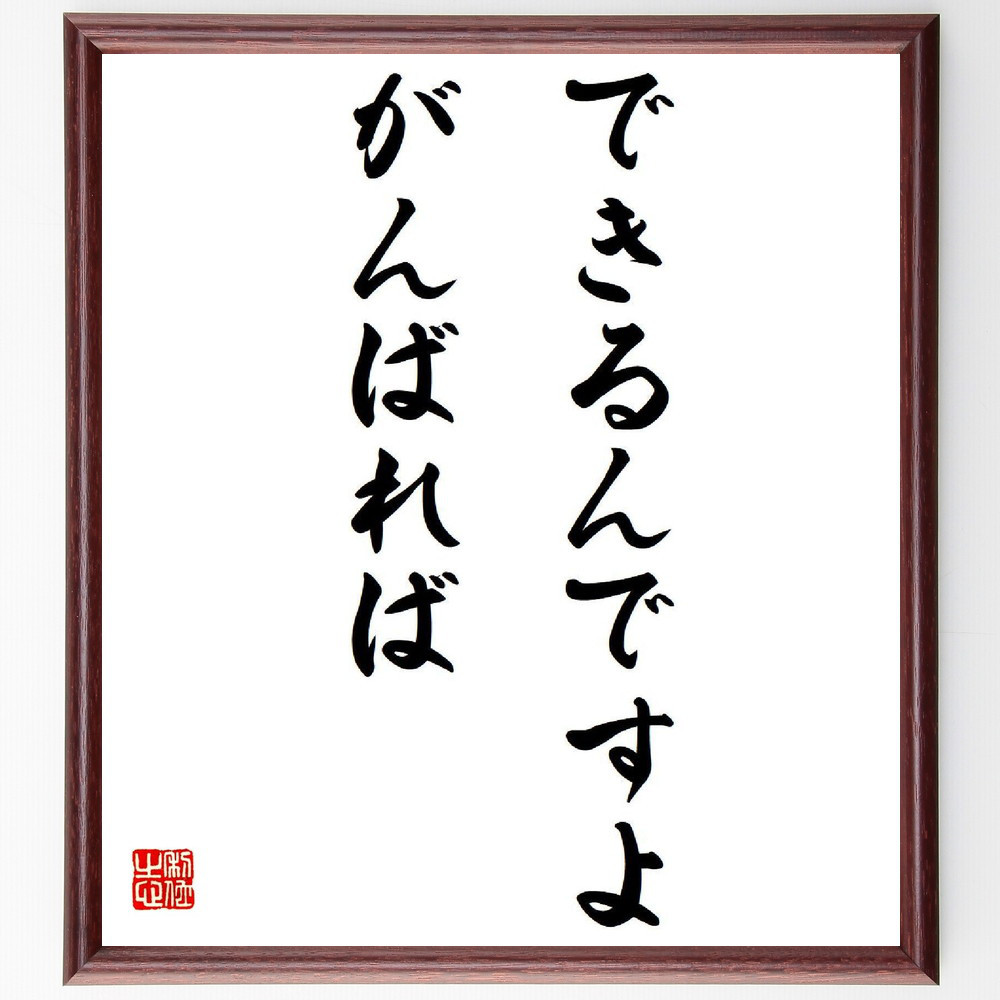 できるんですよ
がんばれば